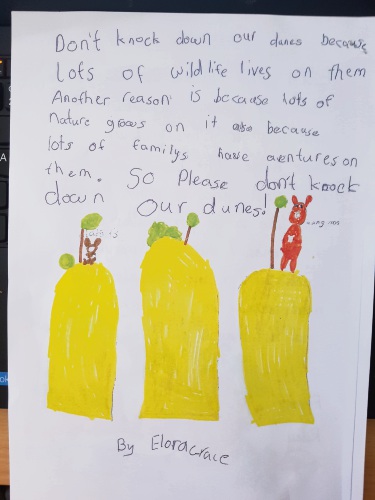 Don't knock down our dunes because
lots of wildlife lives on them
Another reason is because lots of
nature grows on it also because
lots of familys have aventures on
them. So Please don't knock
down our dunes!
By Eloragrace